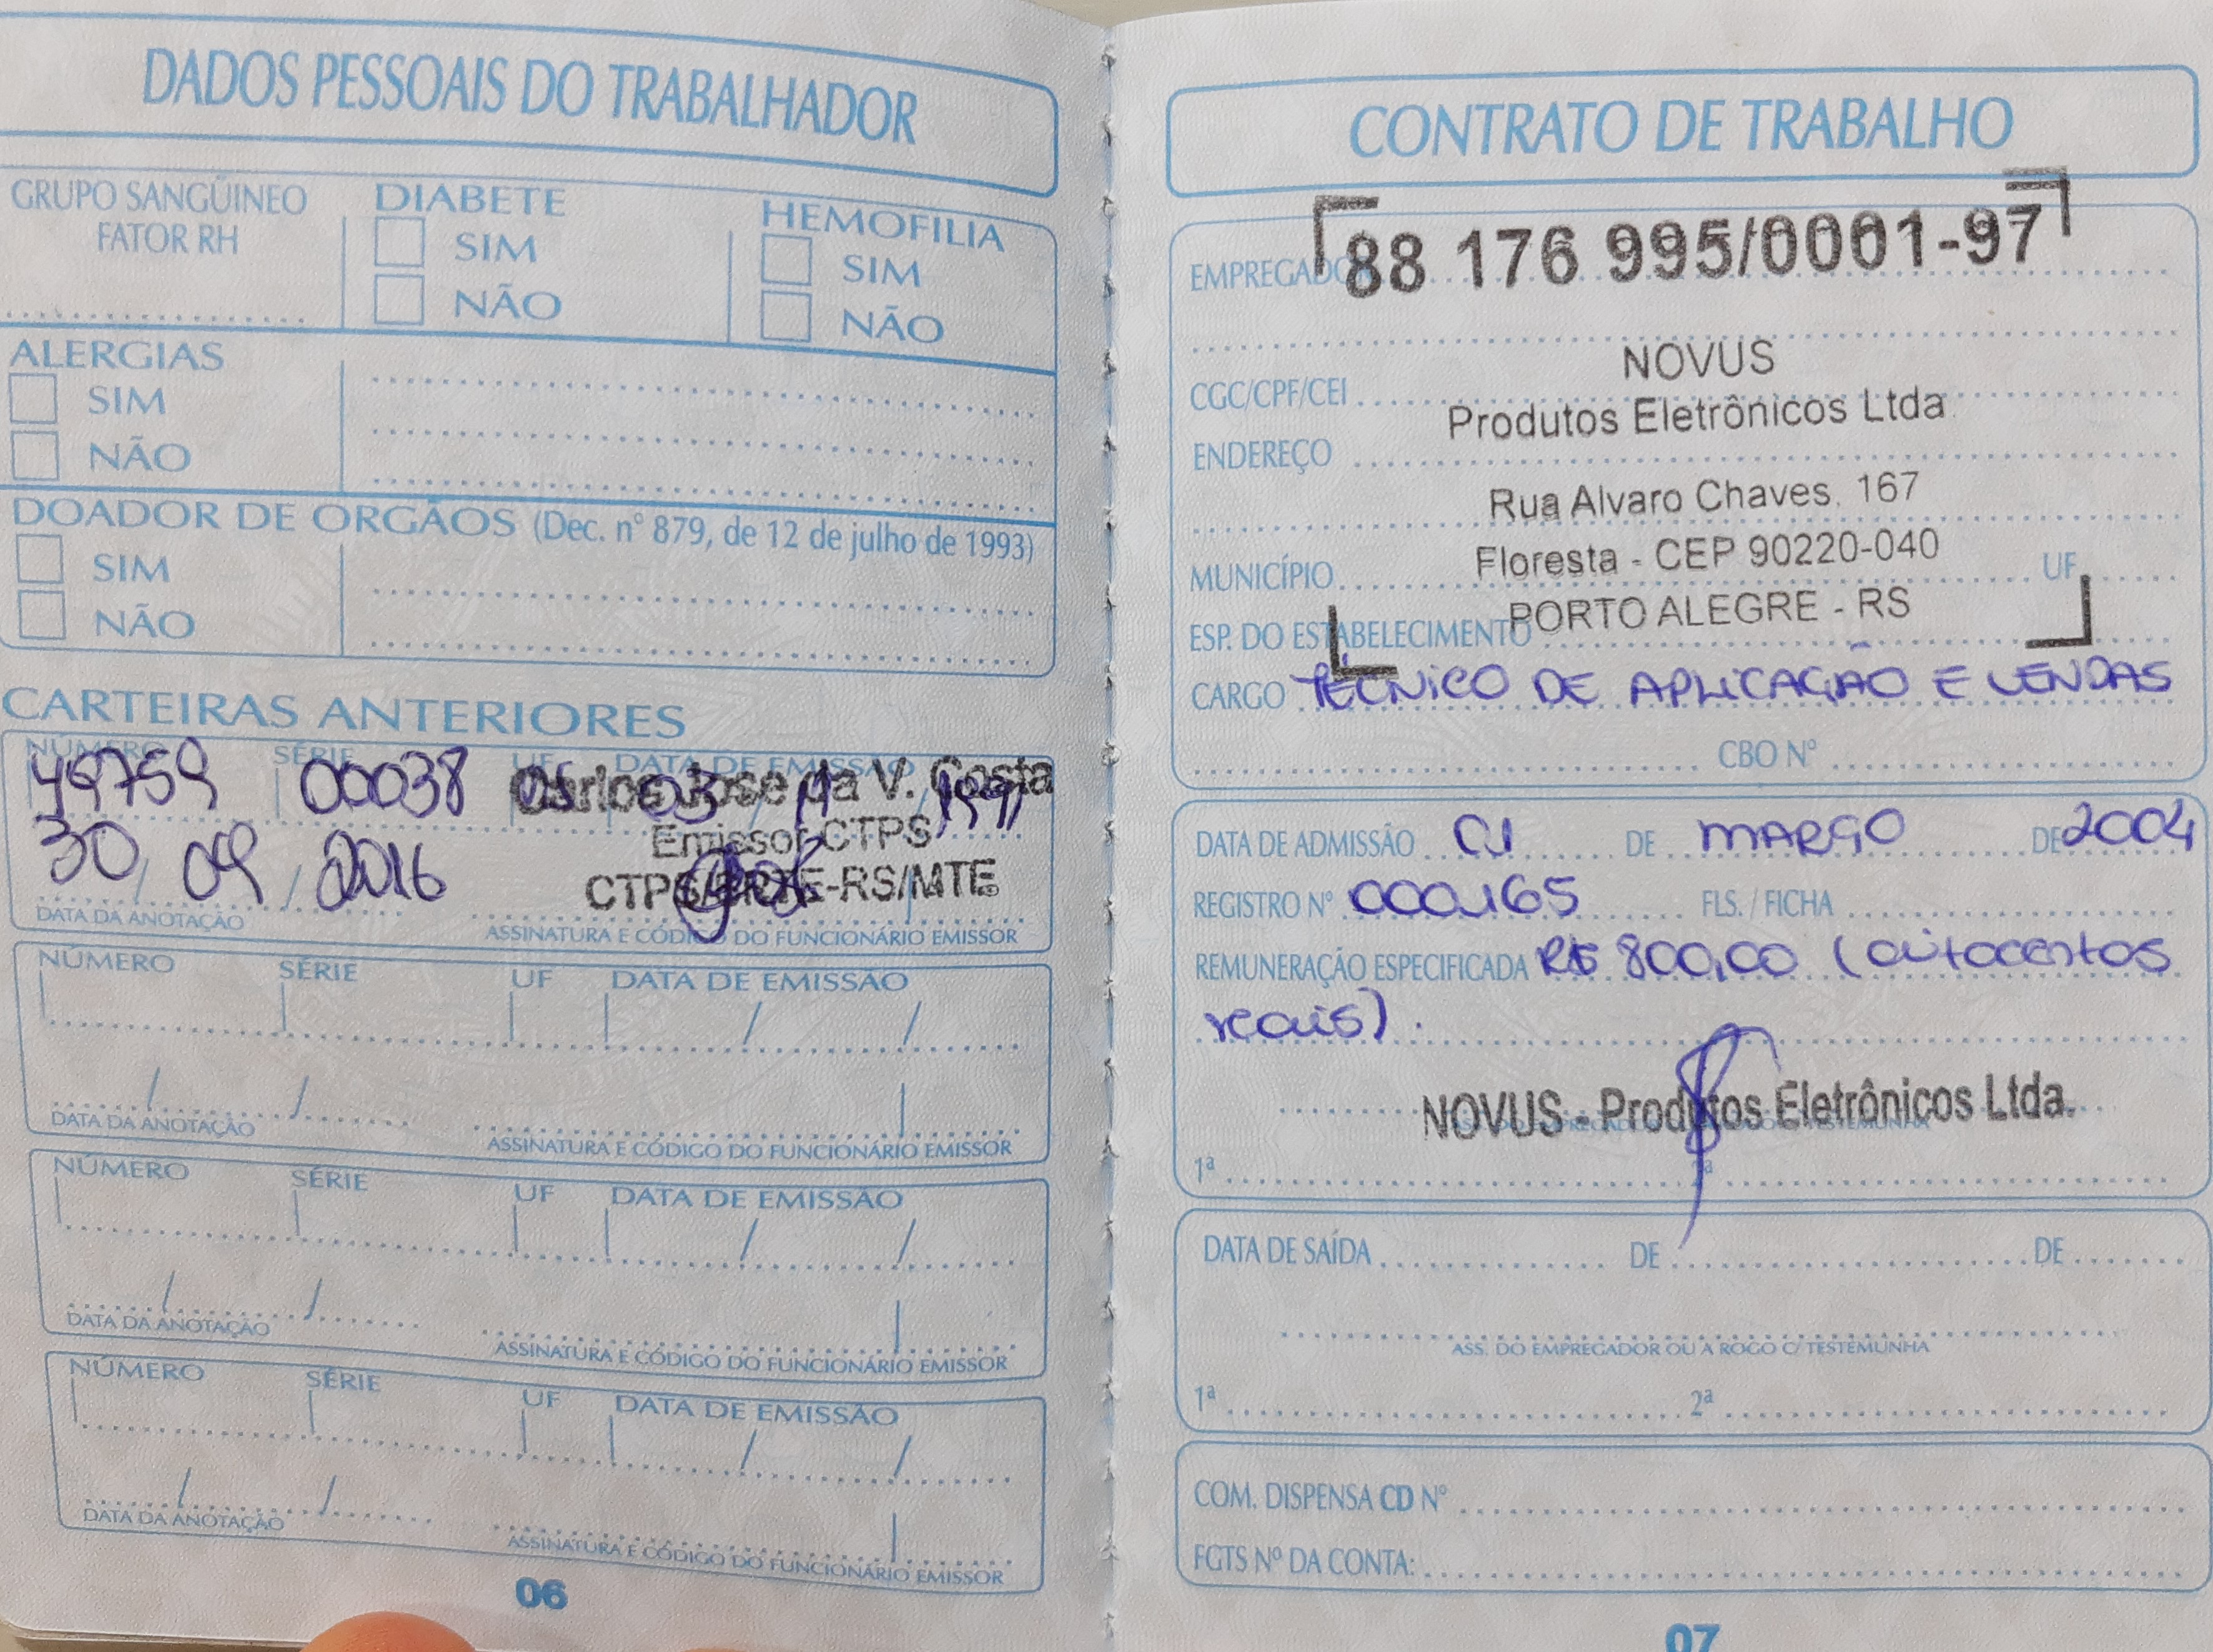 DADOS PESSOAIS DO TRABALHADOR
GRUPO SANGÜINEO
FATOR RH
DIABETE
SIM
NÃO
HEMOFILIA
SIM
NÃO
ALERGIAS
SIM
NÃO
DOADOR DE ORGÃOS (Dec. nº 879, de 12 de julho de 1993)
SIM
NÃO
CARTEIRAS ANTERIORES
NÚMERO SÉRIE UF DATA DE EMISSÃO
49759 00038 03 / 11 / 1991
Carlos Jose da V. Costa
Emissor CTPS
30 / 09 / 2016
CTPS/SRTE-RS/MTE
DATA DA ANOTAÇÃO ASSINATURA E CÓDIGO DO FUNCIONÁRIO EMISSOR
NÚMERO SÉRIE UF DATA DE EMISSÃO
/ /
/ /
DATA DA ANOTAÇÃO ASSINATURA E CÓDIGO DO FUNCIONÁRIO EMISSOR
NÚMERO SÉRIE UF DATA DE EMISSÃO
/ /
/ /
DATA DA ANOTAÇÃO ASSINATURA E CÓDIGO DO FUNCIONÁRIO EMISSOR
NÚMERO SÉRIE UF DATA DE EMISSÃO
/ /
/ /
DATA DA ANOTAÇÃO ASSINATURA E CÓDIGO DO FUNCIONÁRIO EMISSOR
06
CONTRATO DE TRABALHO
EMPREGADOR 88 176 995/0001-97
NOVUS
CGC/CPF/CEI
Produtos Eletrônicos Ltda
ENDEREÇO
Rua Alvaro Chaves, 167
MUNICÍPIO Floresta - CEP 90220-040 UF
ESP. DO ESTABELECIMENTO PORTO ALEGRE - RS
CARGO TÉCNICO DE APLICAÇÃO E VENDAS
CBO Nº
DATA DE ADMISSÃO 01 DE MARÇO DE 2004
REGISTRO Nº 000165 FLS. / FICHA
REMUNERAÇÃO ESPECIFICADA R$ 800,00 (oitocentos
reais).
NOVUS - Produtos Eletrônicos Ltda.
1ª 2ª
DATA DE SAÍDA DE DE
ASS. DO EMPREGADOR OU A ROGO C/ TESTEMUNHA
1ª 2ª
COM. DISPENSA CD Nº
FGTS Nº DA CONTA:
07